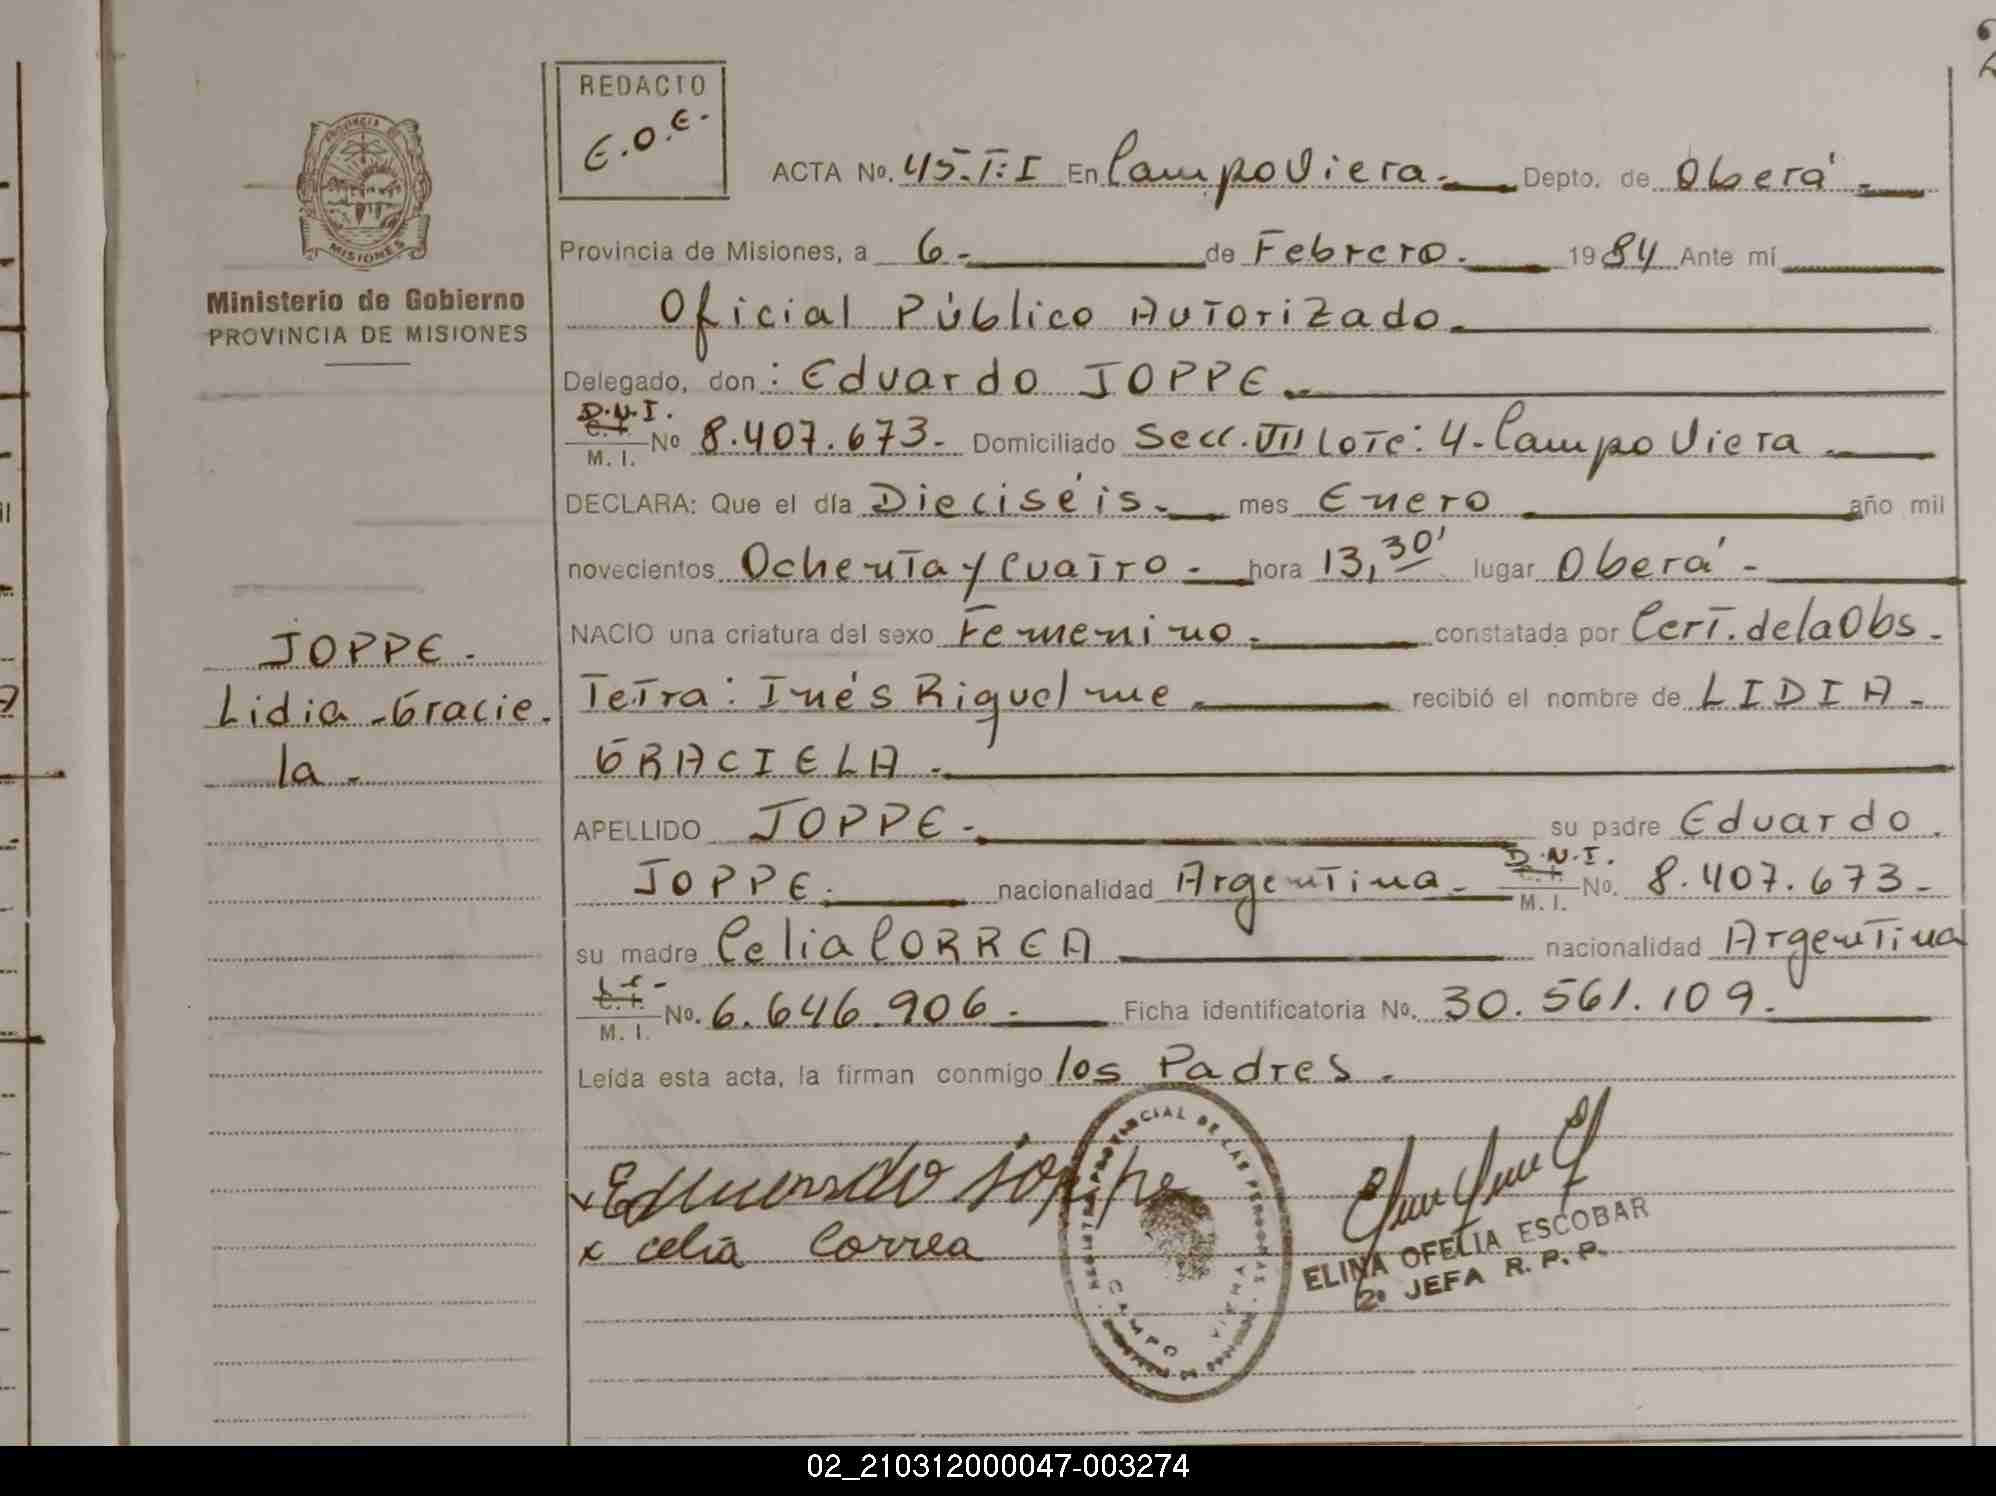 REDACTO
E.O.E.
ACTA No. 45.T:I En Campo Viera. Depto. de Oberá
Provincia de Misiones, a 6. de Febrero. 1984 Ante mí
Oficial Público Autorizado.
Delegado, don: Eduardo JOPPE.
D.N.I.
C. I.
M. I.
No 8.407.673. Domiciliado Secc. VII Lote: 4. Campo Viera
DECLARA: Que el día Dieciséis. mes Enero año mil
novecientos Ochenta y Cuatro. hora 13,30' lugar Oberá.
NACIO una criatura del sexo Femenino. constatada por Cert. de la Obs.
Tetra: Inés Riquelme recibió el nombre de LIDIA.
GRACIELA.
APELLIDO JOPPE. su padre Eduardo
D.N.I.
JOPPE. nacionalidad Argentina. C. I. No. 8.407.673.
M. I.
su madre Celia CORREA nacionalidad Argentina
L.C.
C. I. No. 6.646.906. Ficha identificatoria No. 30.561.109.
M. I.
Leída esta acta, la firman conmigo los Padres.
x Eduardo Joppe
x celia Correa
ELINA OFELIA ESCOBAR
2º JEFA R. P. P.
PROVINCIA DE
MISIONES
Ministerio de Gobierno
PROVINCIA DE MISIONES
JOPPE.
Lidia Gracie.
la.
PROVINCIAL DE LAS PERSONAS
CAMPO
02_210312000047-003274